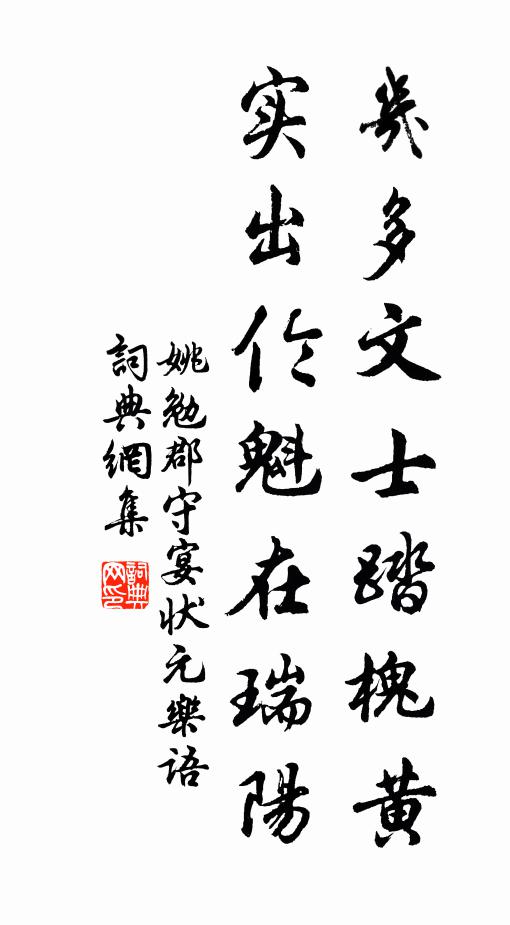 幾多文士踏槐黄
实出伦魁在瑞陽
姚勉郡守宴状元樂語
詞典網集
詞典网印